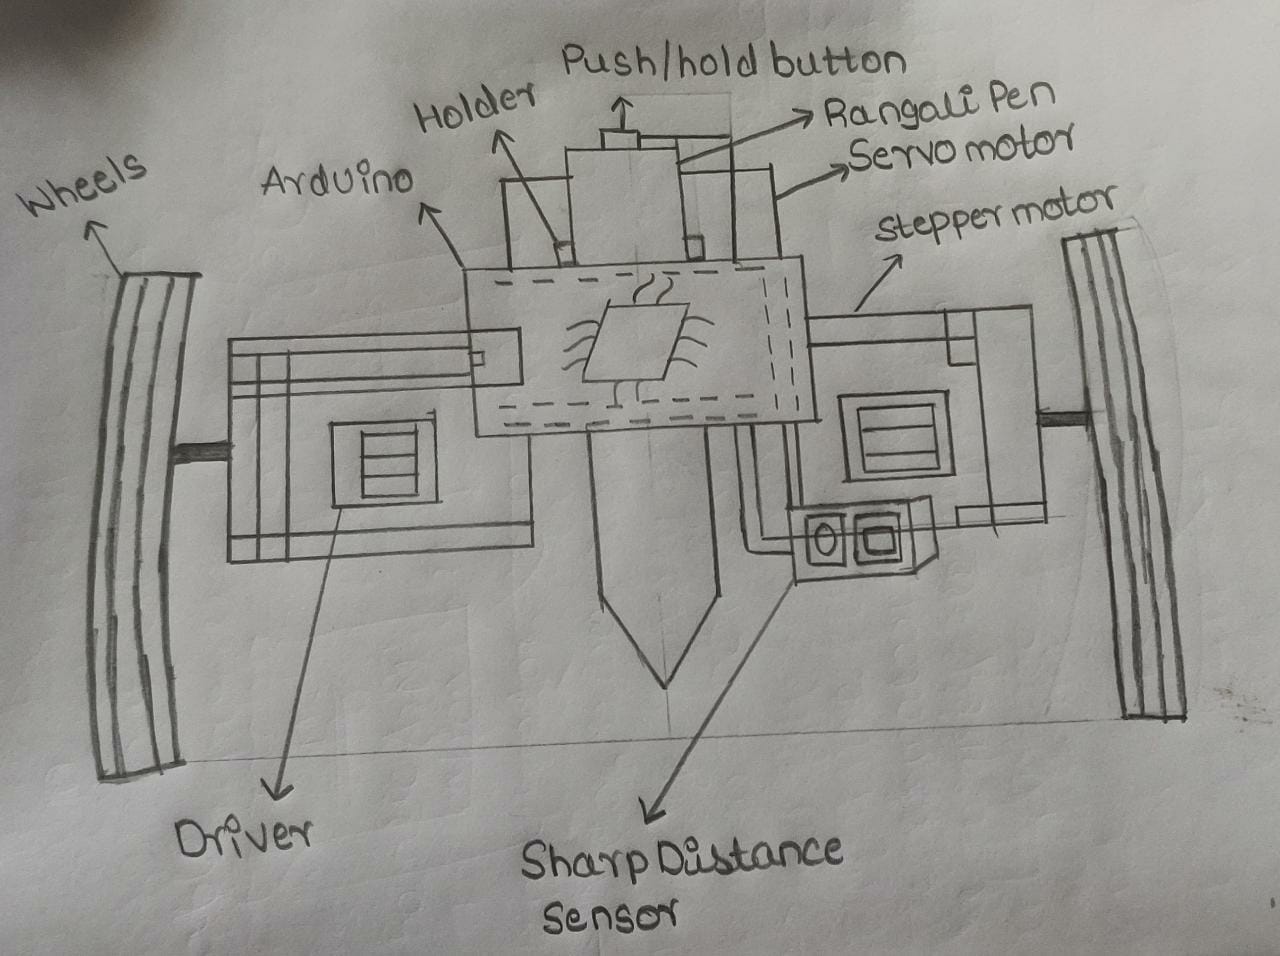 Push/hold button
Holder
Rangali Pen
Servo motor
Wheels
Arduino
stepper motor
Driver
Sharp Distance
sensor